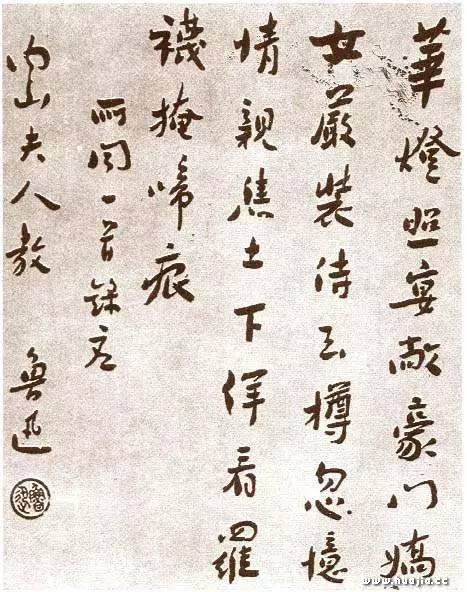 華燈照宴敞豪門嬌
女嚴裝侍玉樽忽憶
情親焦土下佯看羅
襪掩啼痕
所聞一首録
内山夫人教
魯迅
魯迅
www.huajia.cc